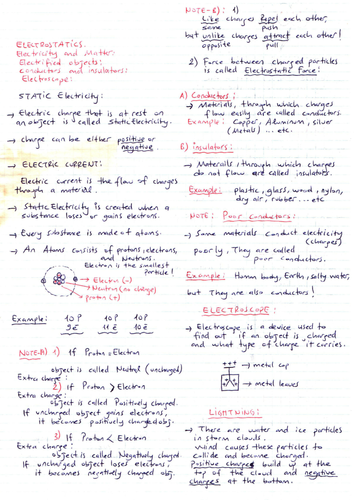 ELECTROSTATICS.
Electricity and Matter:
Electrified objects:
conductors and insulators:
Electroscope:
STATIC Electricity:
→ Electric charge that is at rest on
an object is called Static Electricity.
→ charge can be either positive or
negative
→ ELECTRIC CURRENT:
Electric current is the flow of charges
through a material.
→ Static Electricity is created when a
substance loses or gains electrons.
→ Every substance is made of atoms.
→ An Atoms consists of protons, electrons,
and Neutrons.
Electron is the smallest
Particle!
→ Electron (-)
→ Neutron (no charge)
→ proton (+)
Example: 10 P 10 P 10 P
9 E 11 E 10 E
NOTE-A) 1) If Proton = Electron
object is called Neutral (uncharged)
Extra charge:
2) If Proton > Electron
Extra charge:
object is called Positively charged.
If uncharged object gains electrons,
it becomes positively charged obj.
3) If Proton < Electron
Extra charge:
object is called Negatively charged
If uncharged object loses electrons,
it becomes negatively charged obj.
NOTE-B): 1)
Like charges Repel each other,
same push
but unlike charges attract each other!
opposite pull
2) Force between charged particles
is called Electrostatic Force!
A) Conductors:
→ Materials, through which charges
flow easily are called conductors.
Example: Copper, Aluminum, silver
(Metals) ... etc.
B) insulators:
→ Materials through which charges
do not flow are called insulators.
Example: plastic, glass, wood, nylon,
dry air, rubber ... etc
NOTE: Poor conductors:
→ Some materials conduct electricity
(charges)
poorly, They are called
poor conductors.
Example: Human body, Earth, salty water,
but They are also conductors!
ELECTROSCOPE:
→ Electroscope is a device used to
find out if an object is charged
and what type of charge it carries.
+++ → metal cap
→ metal leaves
LIGHTNING:
→ There are water and ice particles
in storm clouds.
Wind causes these particles to
collide and become charged.
Positive charges build up at the
top of the cloud and negative
charges at the bottom.